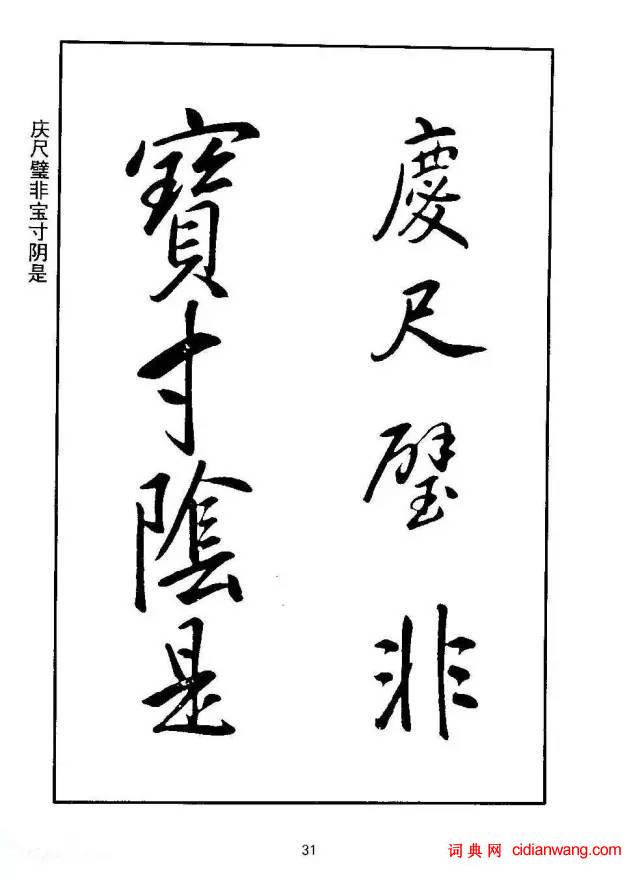 慶尺璧非
寶寸陰是
庆尺璧非宝寸阴是
31
词典网 cidianwang.com